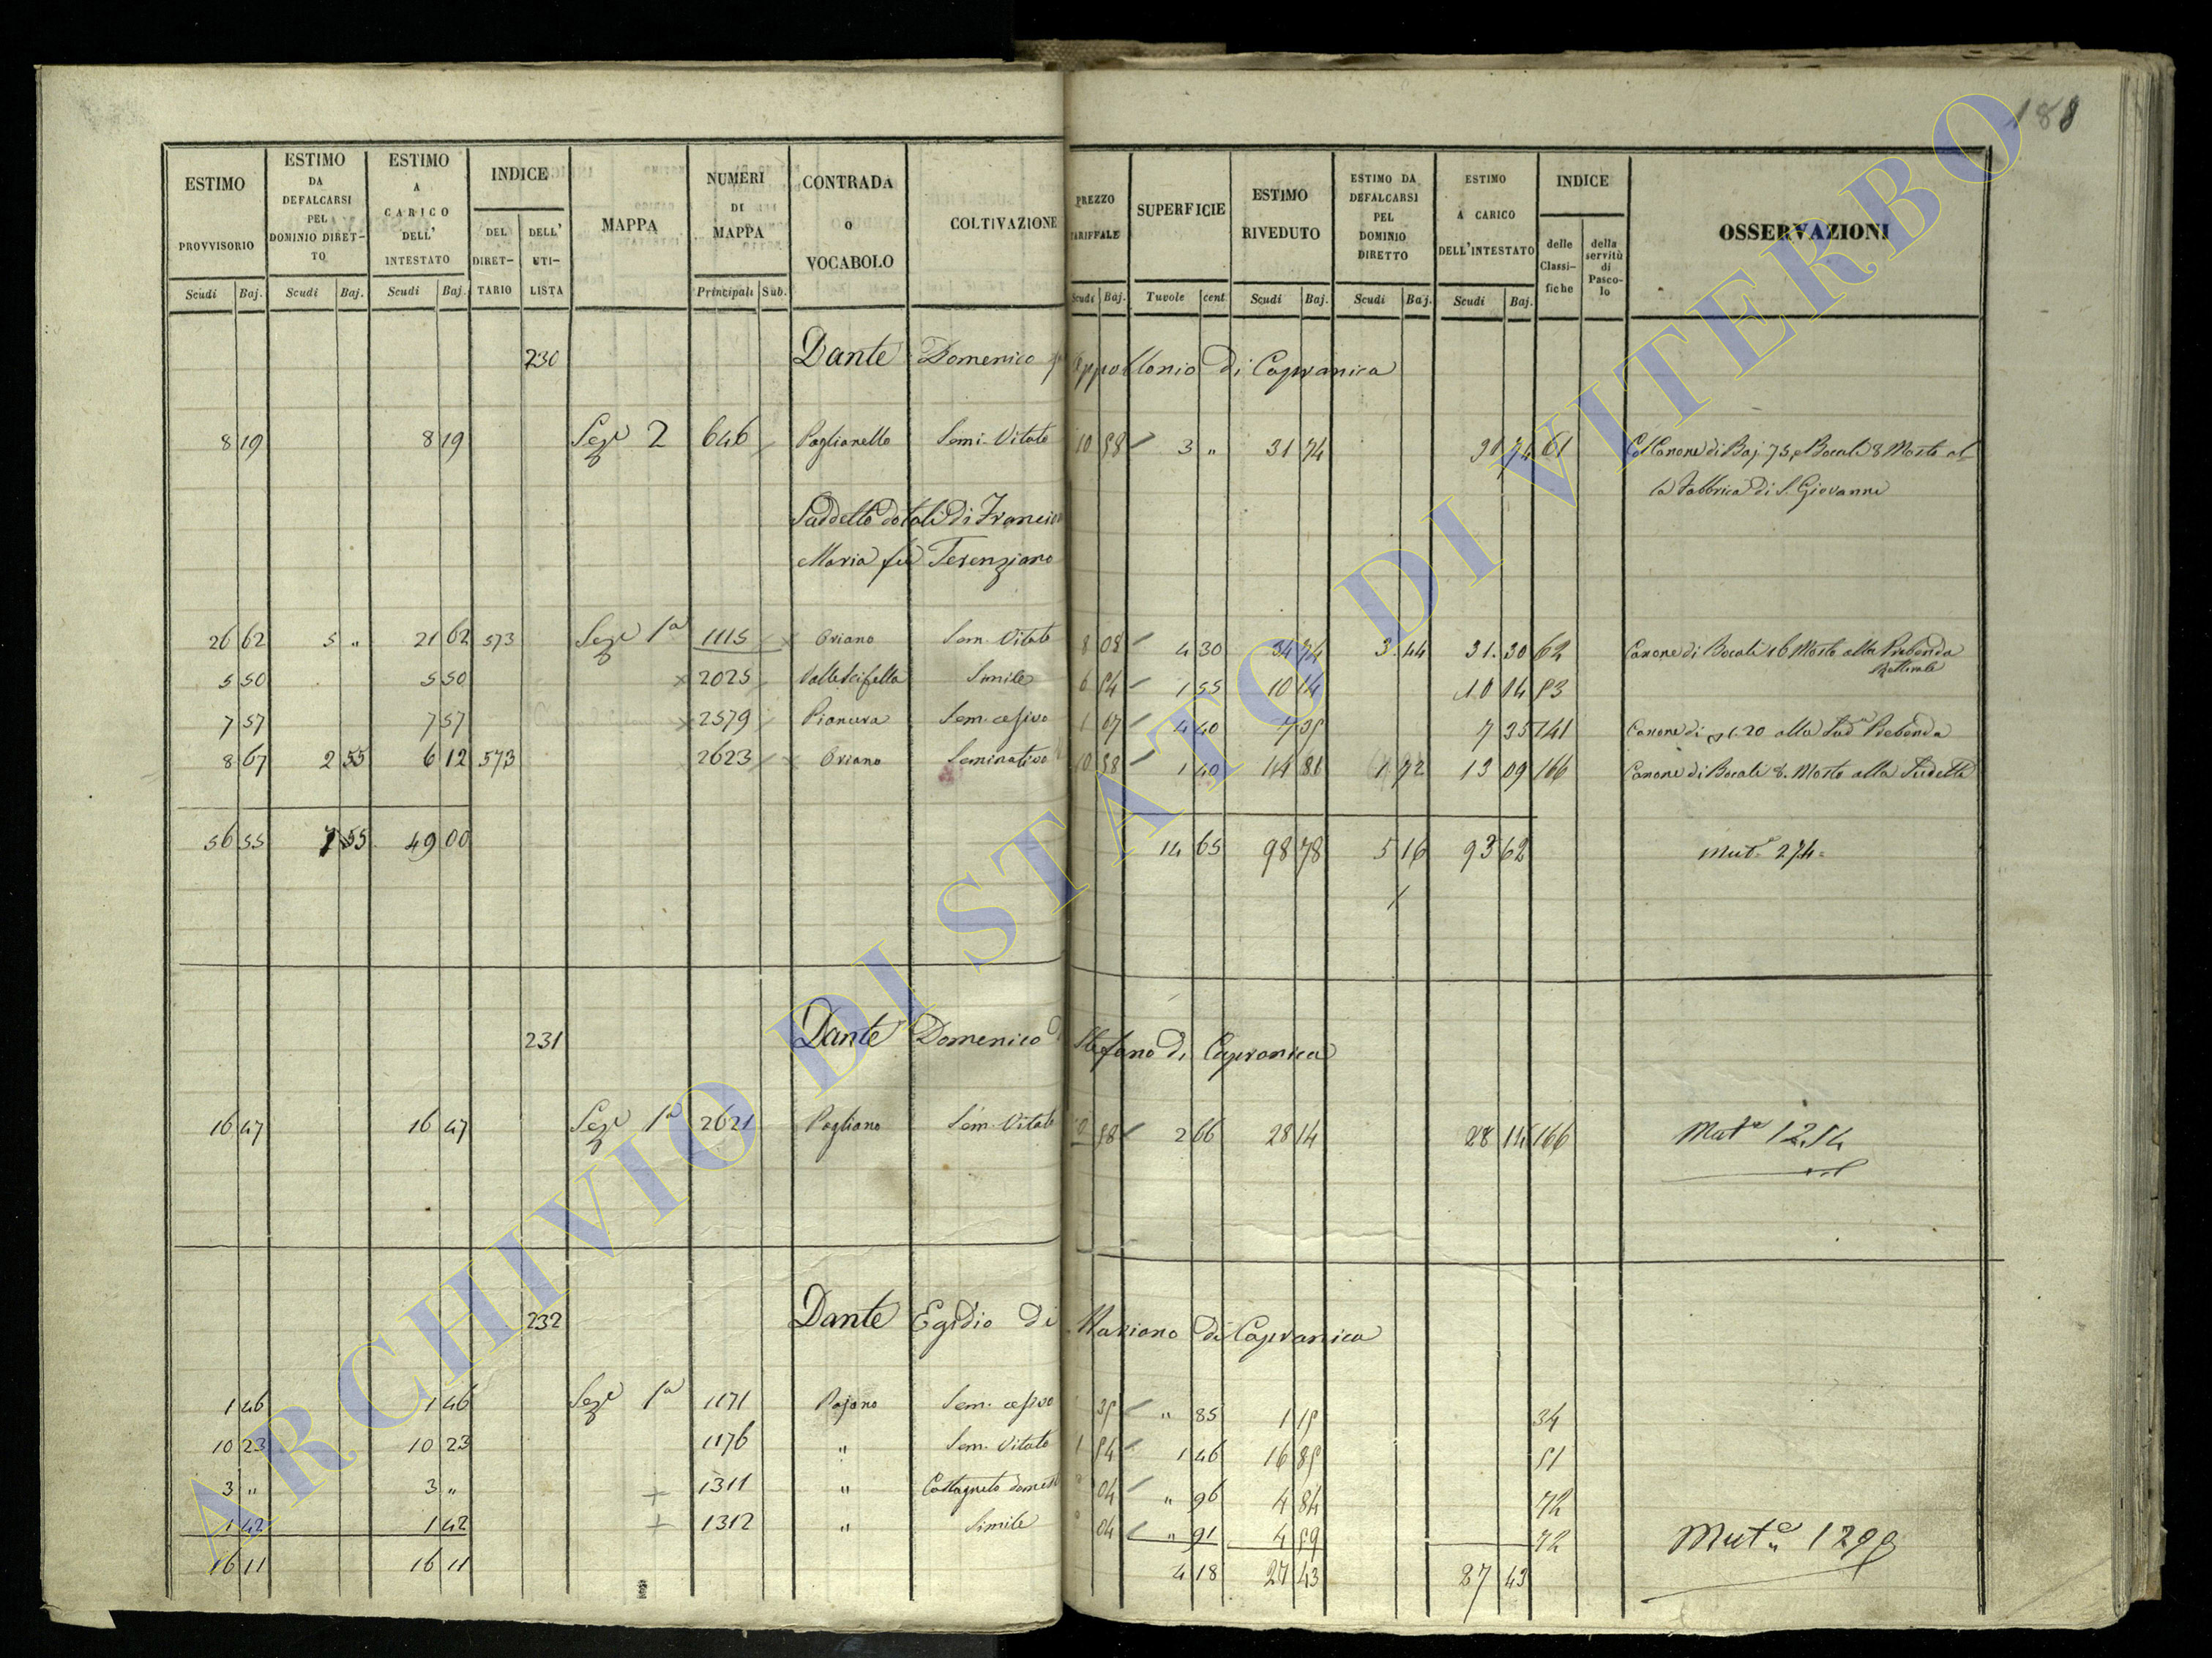 188
ESTIMO PROVVISORIO
ESTIMO DA DEFALCARSI PEL DOMINIO DIRETTO
ESTIMO A CARICO DELL' INTESTATO
INDICE
DEL DIRETTARIO
DELL' UTILISTA
MAPPA
NUMERI DI MAPPA
CONTRADA O VOCABOLO
COLTIVAZIONE
PREZZO TARIFFALE
SUPERFICIE
ESTIMO RIVEDUTO
ESTIMO DA DEFALCARSI PEL DOMINIO DIRETTO
ESTIMO A CARICO DELL'INTESTATO
INDICE
delle Classifiche
della servitù di Pascolo
OSSERVAZIONI
Scudi Baj. Scudi Baj. Scudi Baj. Principali Sub. Scudi Baj. Tavole cent. Scudi Baj. Scudi Baj. Scudi Baj.
230 Dante Domenico Appollonio di Capranica
8 19 8 19 Sez.e 2 646 Poglianello Semi-Vitato 10 58 3 " 31 74 31 74 61 Col Canone di Baj. 75, e Bocali 8 Mosto al-
la Fabbrica di S. Giovanni
Suddetto dotali di
Maria fu Terenziano
26 62 5 " 21 62 573 Sez.e 1a 1115 Oriano Sem. Vitato 8 08 4 30 34 74 3 44 31.30 62 Canone di Bocali 16 Mosto alla Prebenda
5 50 5 50 2025 Simile 6 54 1 55 10 14 10 14 53
7 57 7 57 2579 Pianura Sem. cesivo 1 67 4 40 7 35 7 35 141 Canone di 20 alla Prebenda
8 67 2 55 6 12 573 2623 Oriano Seminativo 10 58 1 40 14 81 1 72 13 09 166 Canone di Bocali 8. Mosto alla Sudetta
56 55 7 55 49 00 14 65 98 78 5 16 93 62 Mut.a 274
231 Dante Domenico di Stefano di Capranica
16 47 16 47 Sez.e 1a 2621 Pogliano Sem. Vitato 10 58 2 66 28 14 28 14 166 Mut.a 1254
232 Dante Egidio di Mariano di Capranica
1 46 1 46 Sez.e 1a 1171 Pojano Sem. cesivo 85 1 15 34
10 23 10 23 1176 " Sem. Vitato 1 46 16 85 51
3 " 3 " 1311 " Castagneto 04 " 96 4 84 72
1 42 1 42 1312 " Simile 04 " 91 4 59 72
16 11 16 11 4 18 27 43 27 43 Mut.a 1299
ARCHIVIO DI STATO DI VITERBO